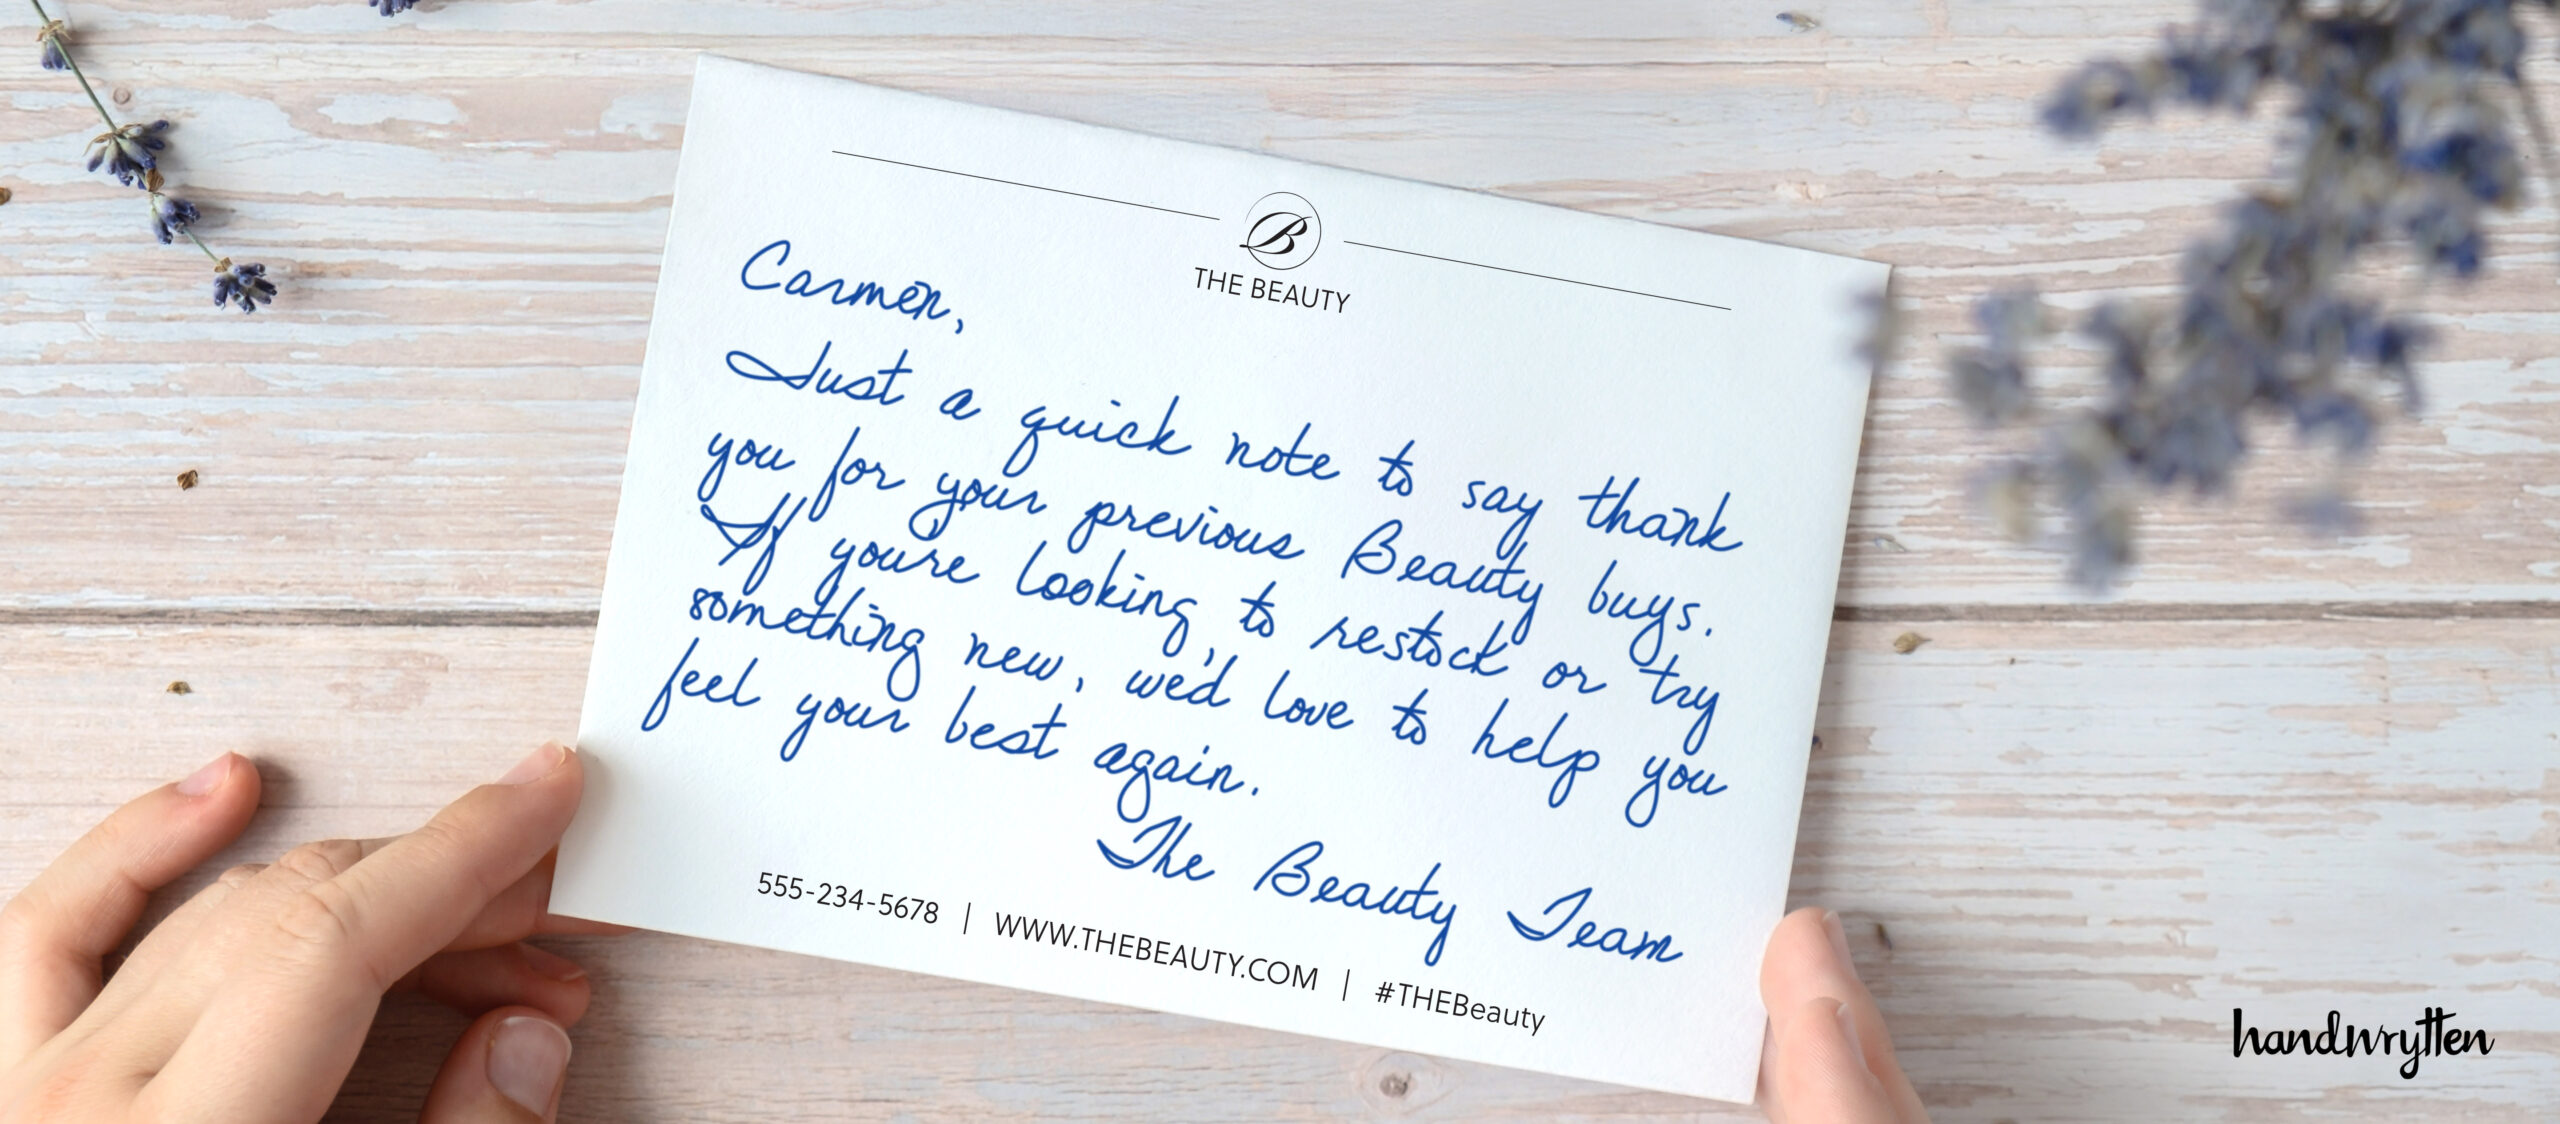 B
THE BEAUTY
Carmen,
Just a quick note to say thank
you for your previous Beauty buys.
If you're looking to restock or try
something new, we'd love to help you
feel your best again.
The Beauty Team
555-234-5678 | WWW.THEBEAUTY.COM | #THEBeauty
handwrytten